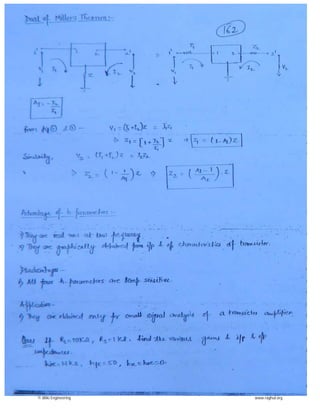 Dual of Miller's Theorem:-
162
1' 1 2 2'
Z
I₁ I₂
V₁ V₂
=
Z₁ Z₂
1 2
I₁ I₂
V₁ V₂
A₁ = -I₂/I₁
from fig ① & ② - V₁ = (I₁+I₂)Z = I₁Z₁
⇒ Z₁ = [1 + I₂/I₁] Z ⇒ Z₁ = (1-A₁)Z
Similarly, V₂ = (I₁+I₂)Z = I₂Z₂
⇒ Z₂ = (1 - 1/A₁) Z ⇒ Z₂ = (A₁-1/A₁). Z
Advantage of h parameters:-
1) They are real nos at low frequency.
2) They are graphically obtained from i/p & o/p characteristics of transistor.
Disadvantages:-
1) All four h-parameters are temp sensitive.
Application:-
1) They are obtained only for small signal analysis of a transistor amplifier.
Ques If RL=10KΩ, Rs=1KΩ. find the various gains & i/p & o/p
impedances.
hie=1.1KΩ, hfe=50, hre=hoe=0.
© Wiki Engineering www.raghul.org